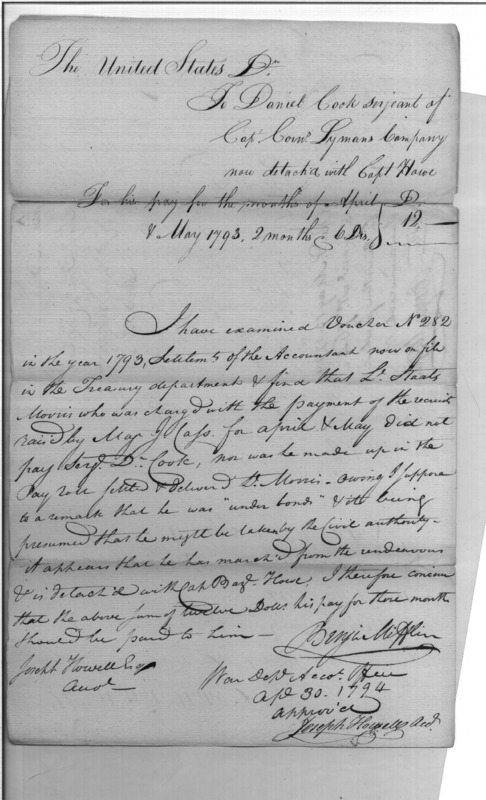 The United States Dr
To Daniel Cook serjeant of
Capt Corns Lymans Company
now detach'd with Capt Howe
For his pay for the months of April
& May 1793, 2 months @ 6 Drs
Ds
12,—
I have examined Voucher No 282
in the year 1793, Settlemts of the Accountant now on file
in the Treasury department & find that Lt Staats
Morris who was charg'd with the payment of the recruits
rais'd by Maj J Cass. for april & May did not
pay Serjt Dl Cook, nor was he made up in the
Pay role & deliverd Lt Morris - owing I suppose
to a remark that he was "under bonds" & it being
presumed that he might be taken by the Civil authority -
it appears that he has march'd from the rendezvous
& is detach'd with Cap Bazl Howe, I therefore conceive
that the above sum of twelve Dolls his pay for those months
should be paid to him —
Benjn Mifflin
Joseph Howell Esqr
Acct
War Dept Accots Office
Apl 30. 1794
approv'd
Joseph Howell Acct.